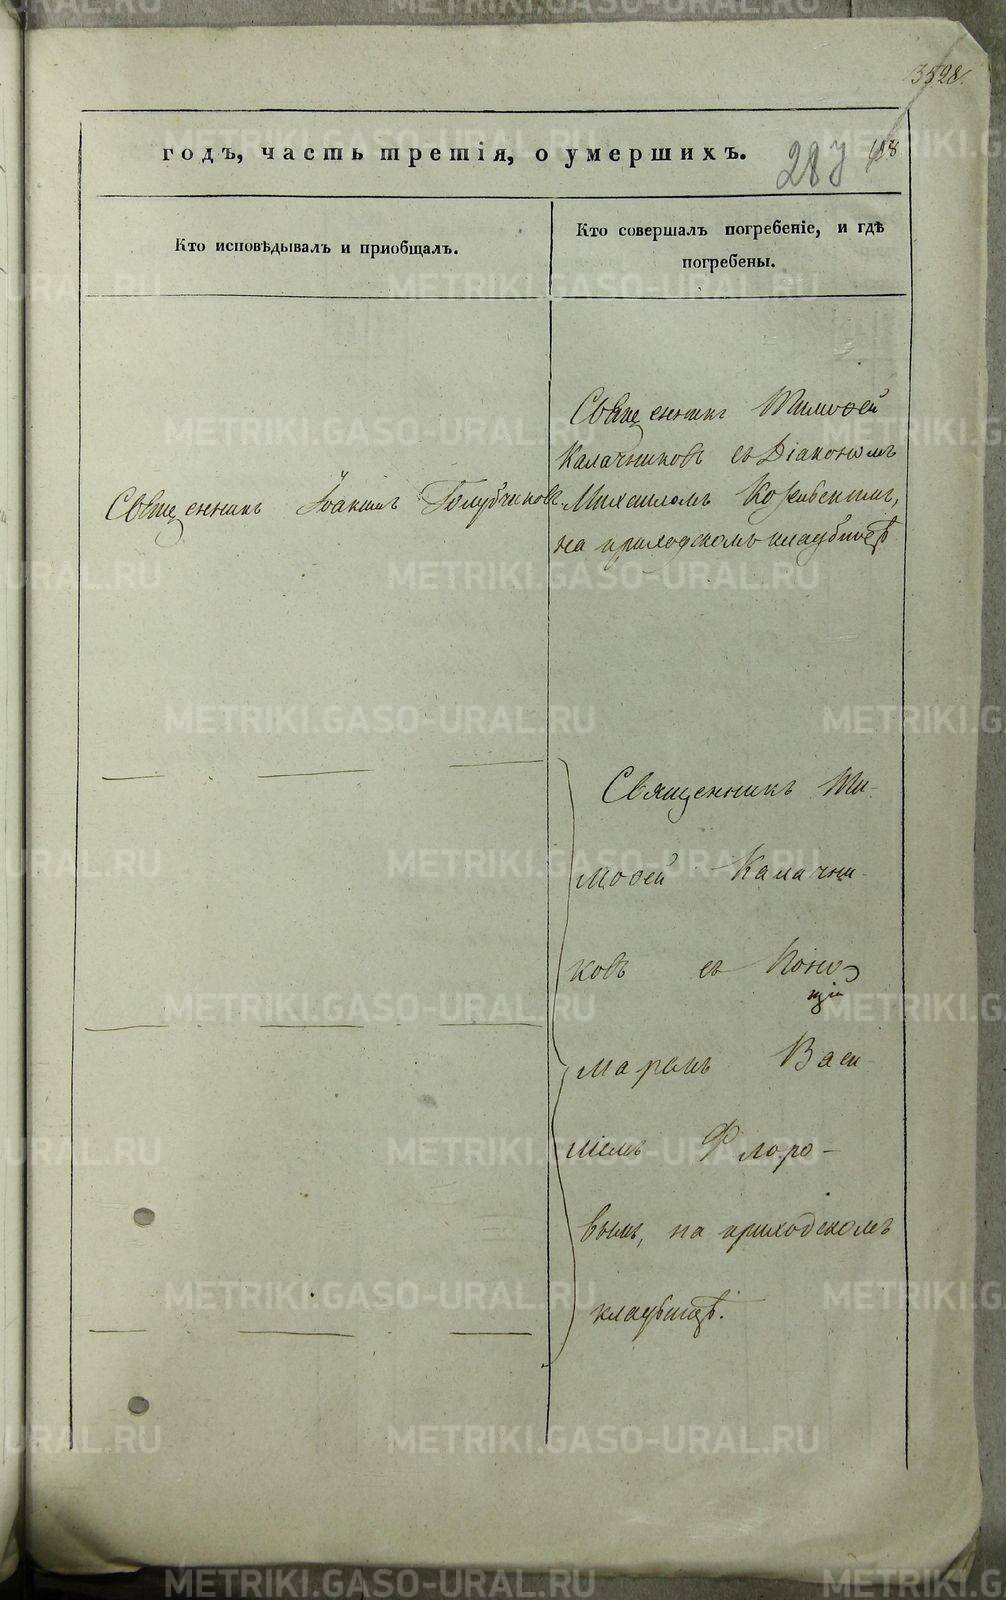 3528.
годъ, часть третія, о умершихъ.
287
Кто исповѣдывалъ и пріобщалъ.
Кто совершалъ погребеніе, и гдѣ
погребены.
Священникъ Тимоѳей
Калачниковъ съ Діакономъ
Священникъ Іоакимъ Голубчиковъ
Михаиломъ
на приходскомъ кладбищѣ
Священникъ Ти-
моѳей Калачни-
ковъ съ Поно-
маремъ Васи-
ліемъ Флоро-
вымъ, на приходскомъ
кладбищѣ.
METRIKI.GASO-URAL.RU